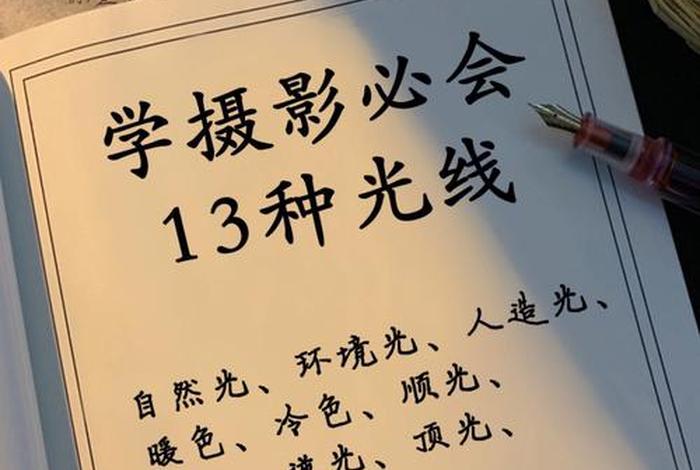 学摄影必会
13种光线
自然光、环境光、人造光、
暖色、冷色、顺光、
光、顶光、